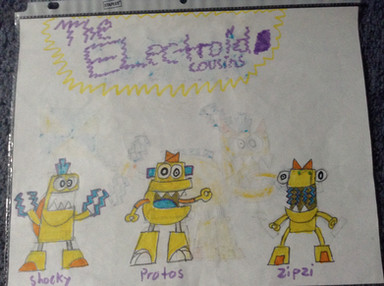 The
Electroids
cousins
shocky
Protos
zipzi